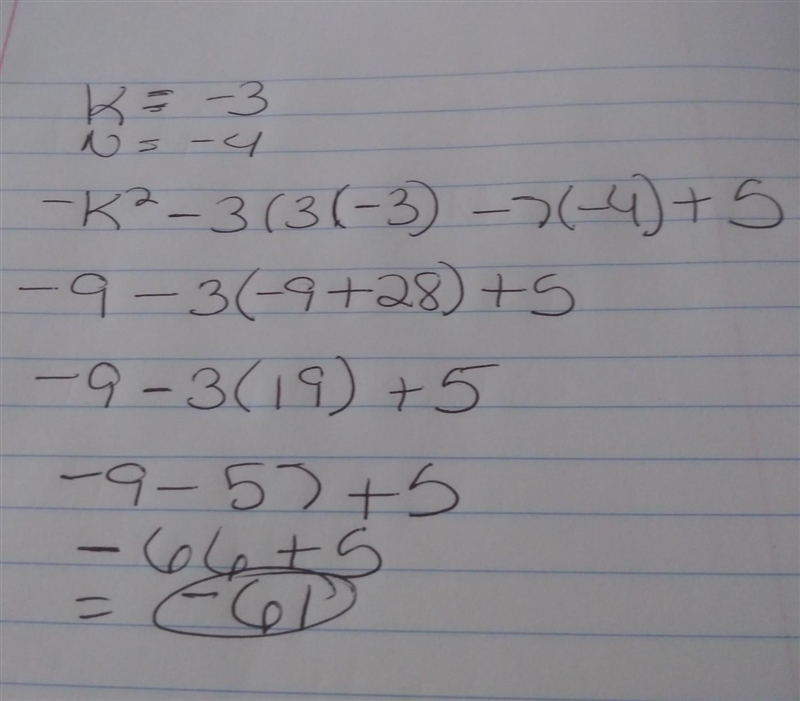 K = -3
N = -4
-K² - 3(3(-3) - 7(-4) + 5
-9 - 3(-9 + 28) + 5
-9 - 3(19) + 5
-9 - 57 + 5
- 66 + 5
= -61